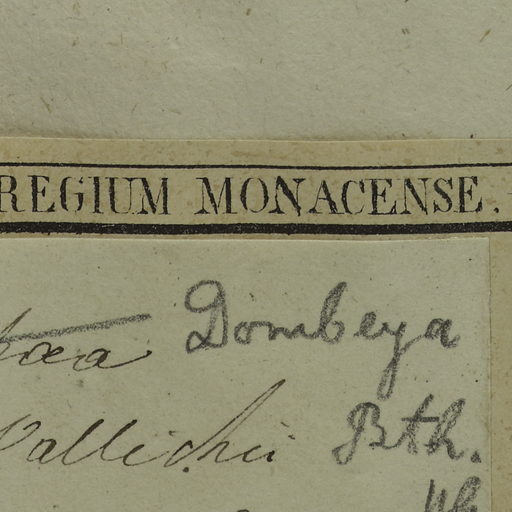 REGIUM MONACENSE.
Dombeya
Wallichii Bth.